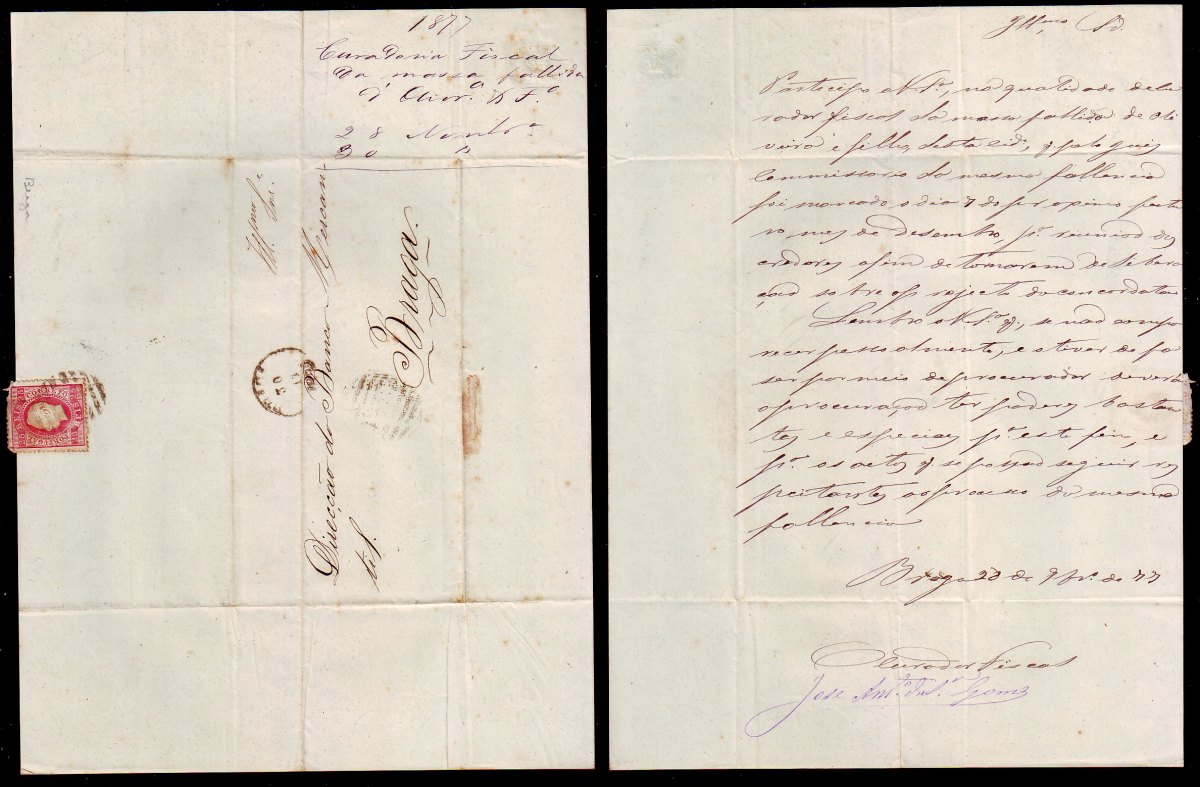 1877
Curadoria Fiscal
da massa fallida
d' Olivr.ª & F.º
28 Novbr.º
30 "
Braga
Ill.mos
Snr.
Direcção do Banco Mercan-
til.
Braga.
BRAGA
30
CORREIO
PORTUGAL
25 REIS
Ill.mo Sr.
Participo a V. S.ª, na qualidade de Cu
rador fiscal da massa fallida de Oli
veira e filho, desta cid.e, q pelo juiz
Commissario da mesma fallencia
foi marcado o dia 7 do proximo futu
ro mez de Desembro, p.ª reunião dos
credores afim de tomarem delibera
ção sobre o projecto da concordata
Lembro a V. S.ª q., se não compa
recer pessoalmente, e tiver de fa
ser por meio de procurador deverá
a procuração ter poderes bastan
tes e especiaes p.ª este fim, e
p.ª os actos q se possão seguir res
peitantes ao processo da mesma
fallencia
Braga 28 de 9br.º de 77
O Curador Fiscal
José Ant.º Gomes